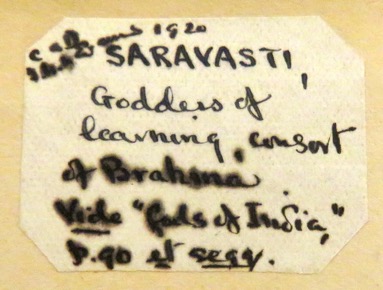 1920
SARAVASTI,
Goddess of
learning, consort
of Brahma.
Vide "Gods of India,"
p.90 et seqq.